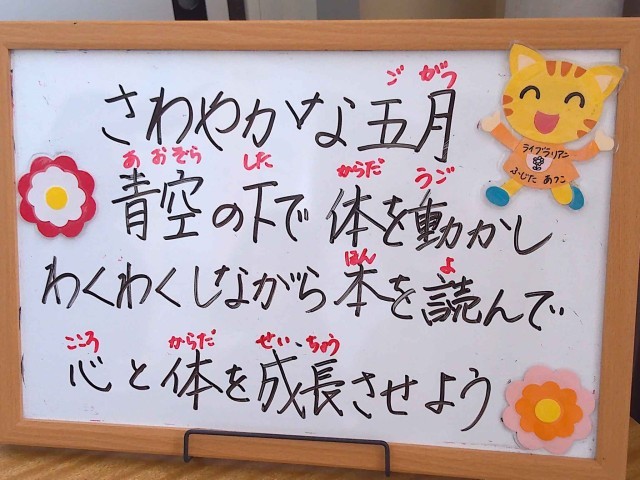 ご がつ
さわやかな五月
あおぞら した からだ うご
青空の下で 体を動かし
ほん よ
わくわくしながら本を読んで
こころ からだ せい、ちょう
心と体を成長させよう
ライブラリアン
ふじた あつこ